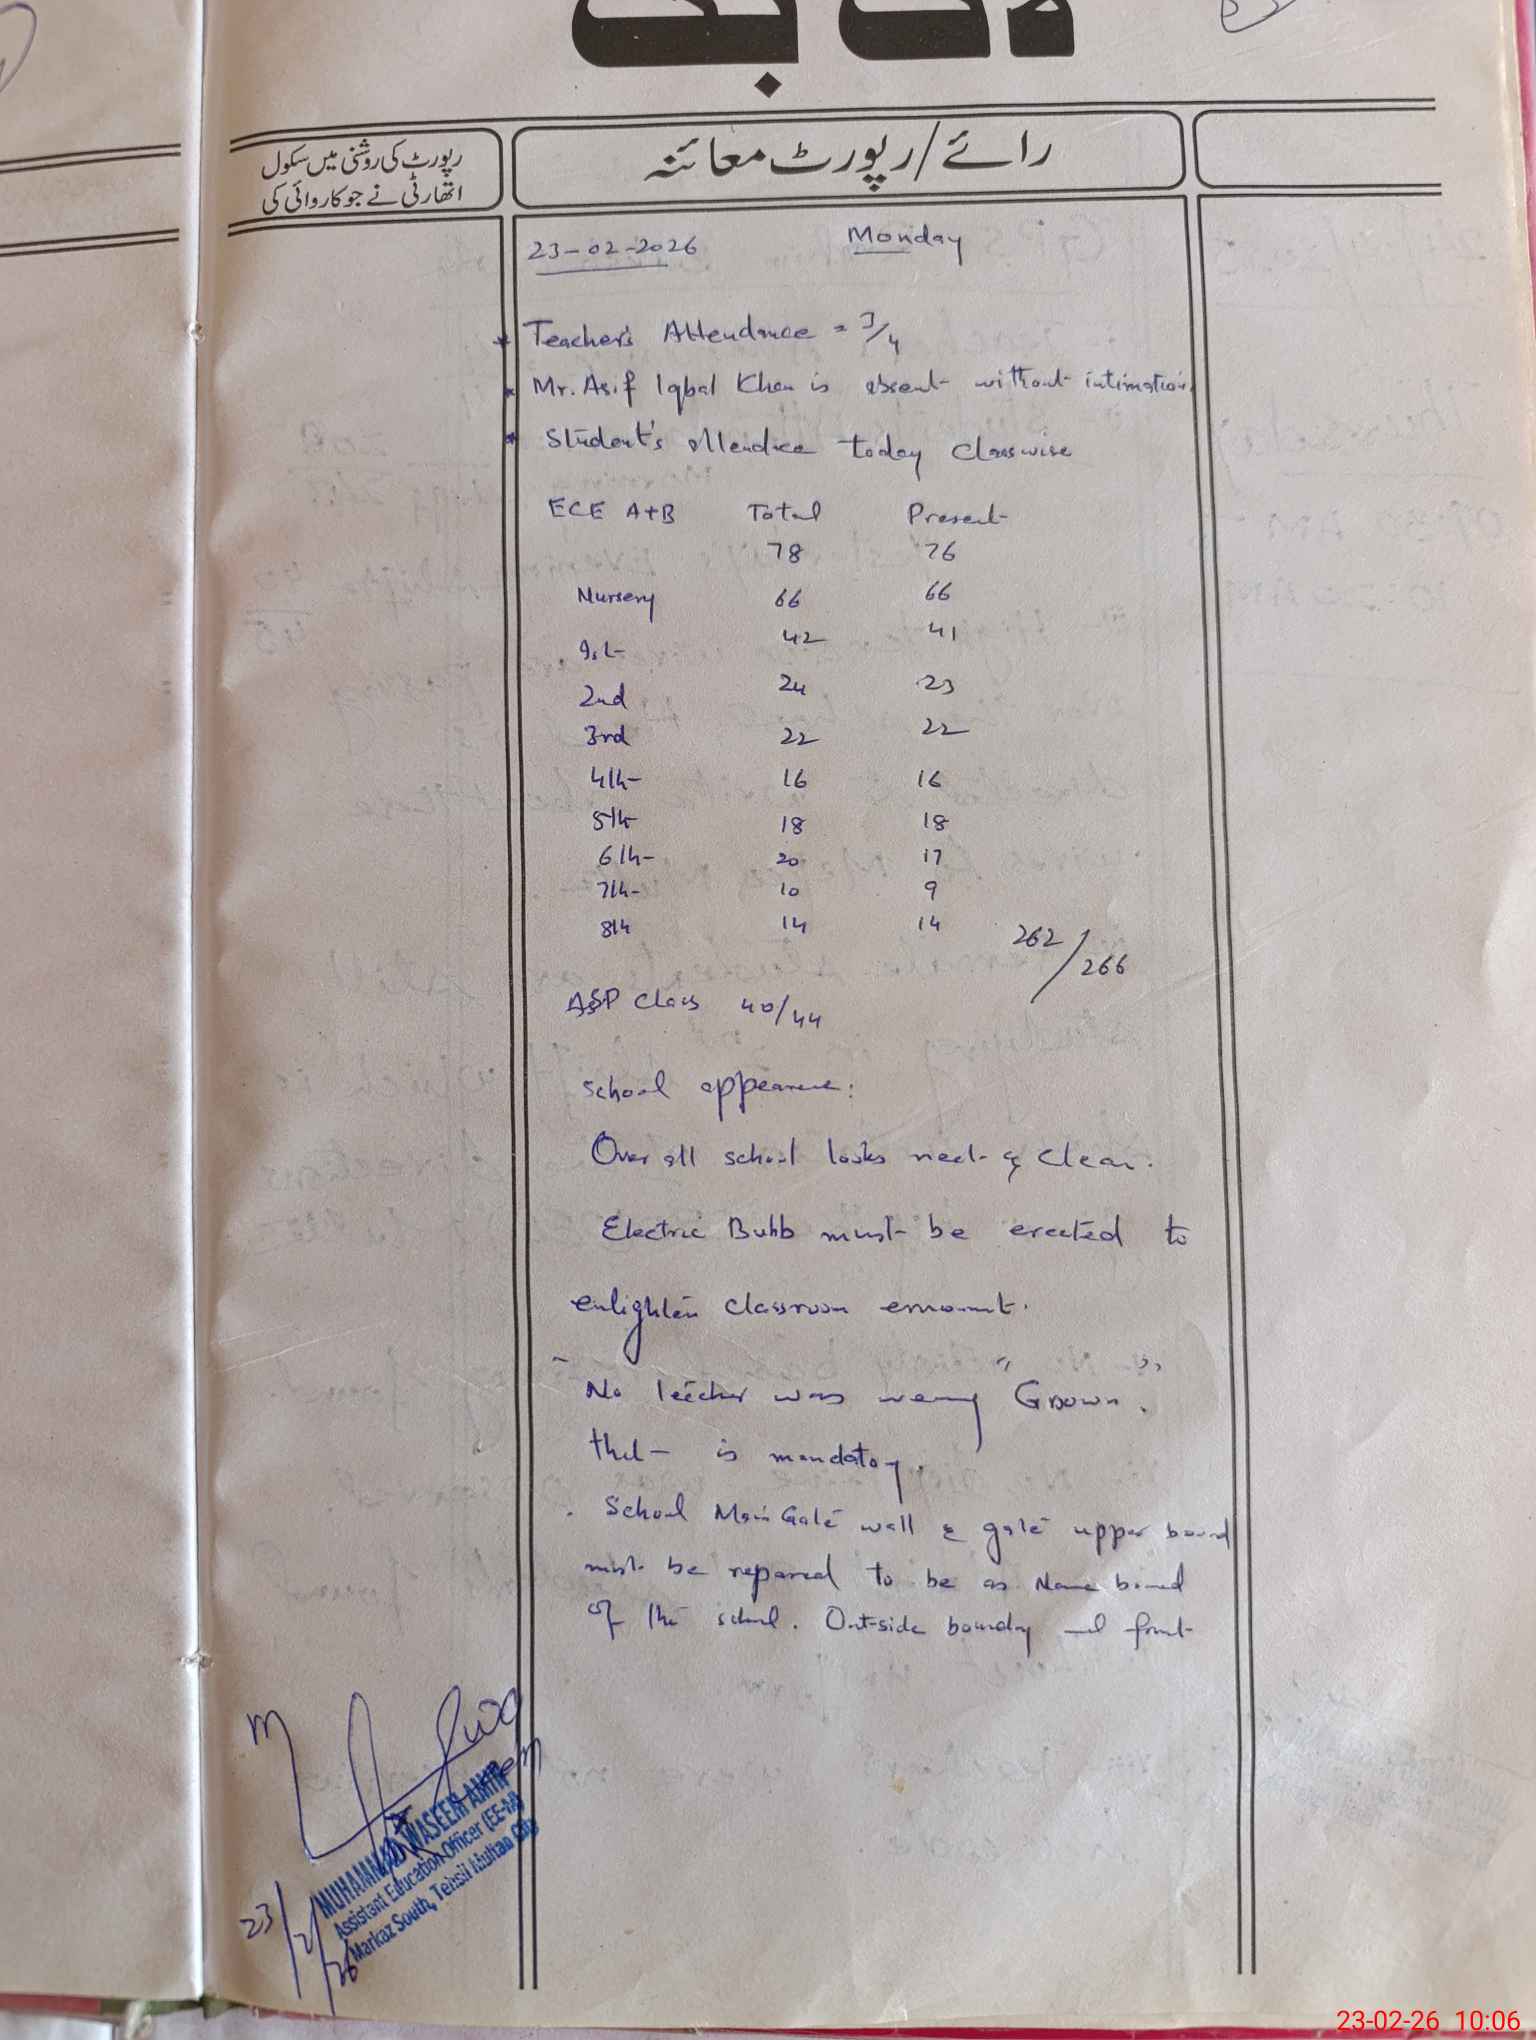 لاگ بک
رپورٹ کی روشنی میں سکول
اتھارٹی نے جو کاروائی کی
رائے/رپورٹ معائنہ
23-02-2026 Monday
* Teacher's Attendance = 3/4
* Mr. Asif Iqbal Khan is absent without intimation.
* Student's attendce today classwise
ECE A+B Total Present
78 76
Nursery 66 66
1st 42 41
2nd 24 23
3rd 22 22
4th 16 16
5th 18 18
6th 20 17
7th 10 9
8th 14 14
262/266
ASP Class 40/44
School appearence:
Over all school looks neat & clean.
Electric Bulb must be erected to
enlighten classroom
No teacher was wearing "Gown".
that is mandatory.
. School Main Gate wall & gate upper board
must be repaired to be as Name board
of the school. Out-side boundry and front
MUHAMMAD WASEEM AMIR
Assistant Education Officer (EE-M)
Markaz South, Tehsil Multan City
23/2/26
23-02-26 10:06